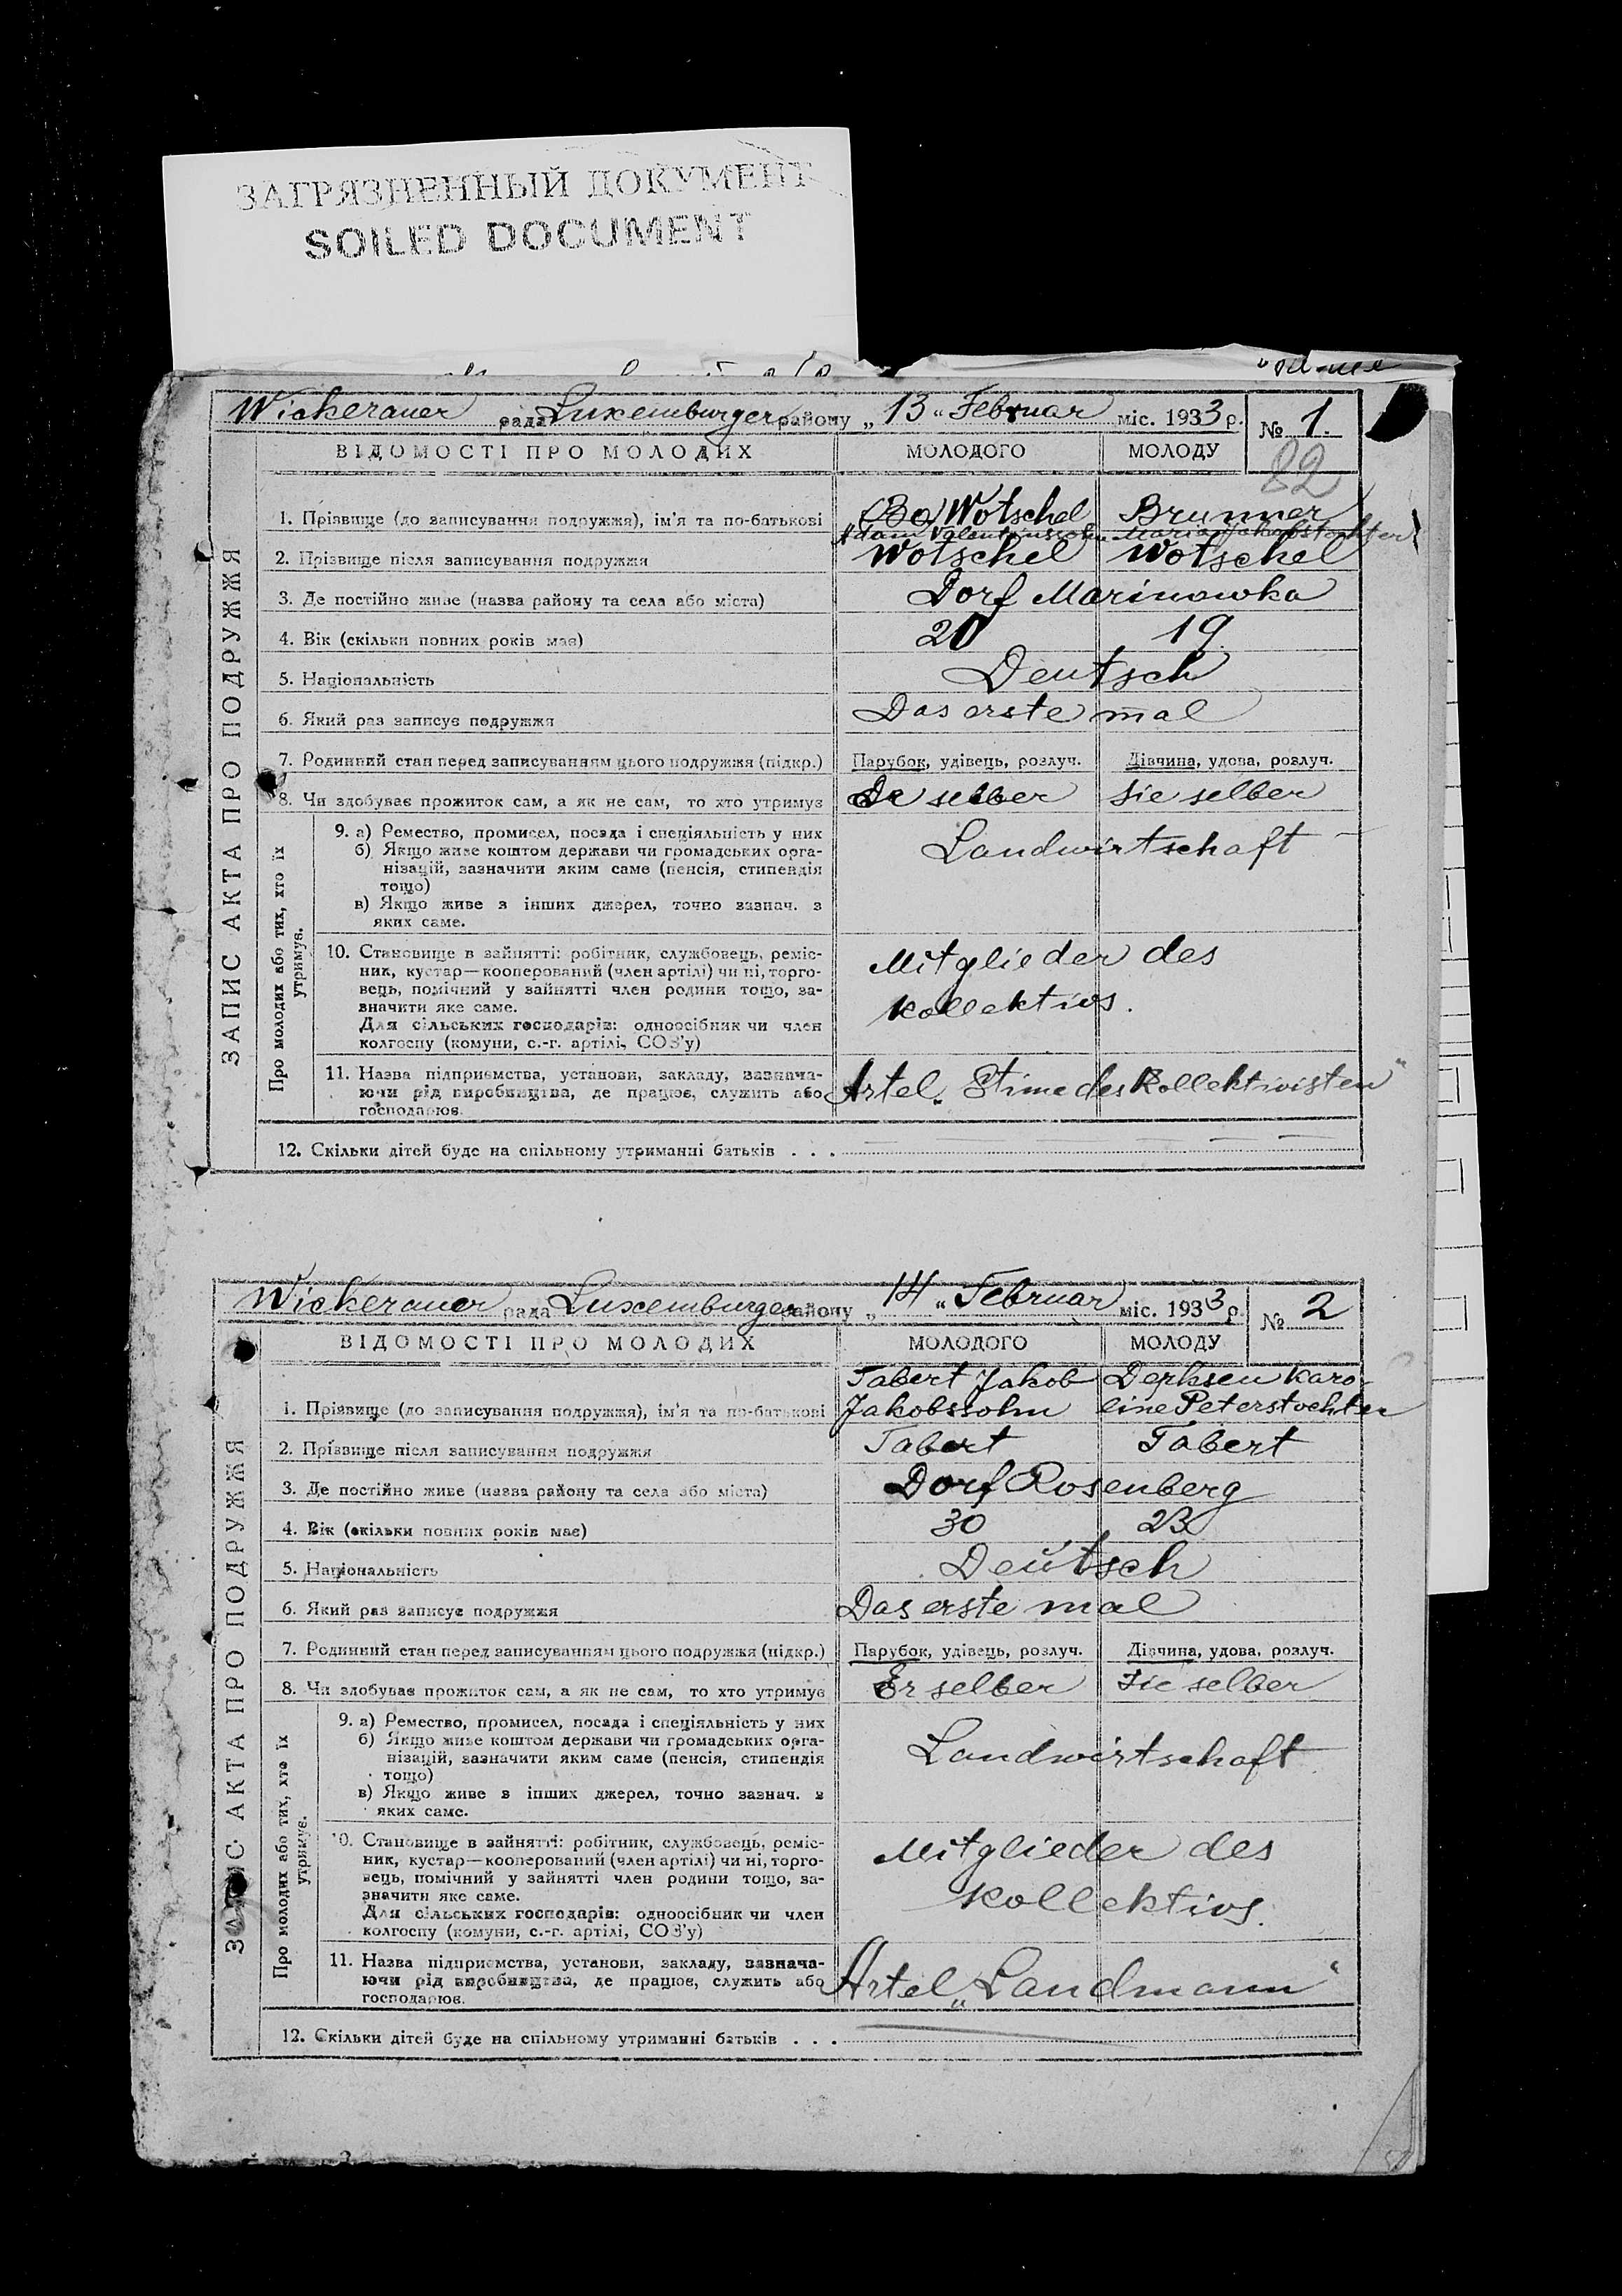 ЗАГРЯЗНЕННЫЙ ДОКУМЕНТ
SOILED DOCUMENT
Wickerauer рада Luxemburger району „ 13 “ Februar міс. 1933 р.
№ 1.
82
ВІДОМОСТІ ПРО МОЛОДИХ МОЛОДОГО МОЛОДУ
ЗАПИС АКТА ПРО ПОДРУЖЖЯ
1. Прізвище (до записування подружжя), ім'я та по-батькові Wotschel Brunner
Adam Valentinssohn Maria Jakobstochter
2. Прізвище після записування подружжя Wotschel Wotschel
3. Де постійно живе (назва району та села або міста) Dorf Marinowka
4. Вік (скільки повних років має) 20 19
5. Національність Deutsch
6. Який раз записує подружжя Das erste mal
7. Родинний стан перед записуванням цього подружжя (підкр.) Парубок, удівець, розлуч. Дівчина, удова, розлуч.
8. Чи здобуває прожиток сам, а як не сам, то хто утримує selber Sie selber
Про молодих або тих, хто їх
утримує.
9. а) Ремество, промисел, посада і спеціяльність у них Landwirtschaft
б) Якщо живе коштом держави чи громадських орга-
нізацій, зазначити яким саме (пенсія, стипендія
тощо)
в) Якщо живе з інших джерел, точно зазнач. з
яких саме.
10. Становище в зайнятті: робітник, службовець, реміс- Mitglieder des
ник, кустар—кооперований (член артілі) чи ні, торго-
вець, помічний у зайнятті член родини тощо, за-
значити яке саме. Kollektivs.
Для сільських господарів: одноосібник чи член
колгоспу (комуни, с.-г. артілі, СОЗ'у)
11. Назва підприємства, установи, закладу, зазнача- Artel „Stime des Kollektivisten“
ючи рід виробництва, де працює, служить або
господарює.
12. Скільки дітей буде на спільному утриманні батьків . . .
Wickerauer рада Luxemburger району „ 14 “ Februar міс. 1933 р.
№ 2
ВІДОМОСТІ ПРО МОЛОДИХ МОЛОДОГО МОЛОДУ
ЗАПИС АКТА ПРО ПОДРУЖЖЯ
Tabert Jakob Derksen Karo-
1. Прізвище (до записування подружжя), ім'я та по-батькові Jakobssohn line Peterstochter
2. Прізвище після записування подружжя Tabert Tabert
3. Де постійно живе (назва району та села або міста) Dorf Rosenberg
4. Вік (скільки повних років має) 30 23
5. Національність Deutsch
6. Який раз записує подружжя Das erste mal
7. Родинний стан перед записуванням цього подружжя (підкр.) Парубок, удівець, розлуч. Дівчина, удова, розлуч.
8. Чи здобуває прожиток сам, а як не сам, то хто утримує Er selber Sie selber
Про молодих або тих, хто їх
утримує.
9. а) Ремество, промисел, посада і спеціяльність у них
б) Якщо живе коштом держави чи громадських орга- Landwirtschaft
нізацій, зазначити яким саме (пенсія, стипендія
тощо)
в) Якщо живе з інших джерел, точно зазнач. з
яких саме.
10. Становище в зайнятті: робітник, службовець, реміс- Mitglieder des
ник, кустар—кооперований (член артілі) чи ні, торго-
вець, помічний у зайнятті член родини тощо, за-
значити яке саме. Kollektivs.
Для сільських господарів: одноосібник чи член
колгоспу (комуни, с.-г. артілі, СОЗ'у)
11. Назва підприємства, установи, закладу, зазнача- Artel „Landmann“
ючи рід виробництва, де працює, служить або
господарює.
12. Скільки дітей буде на спільному утриманні батьків . . .